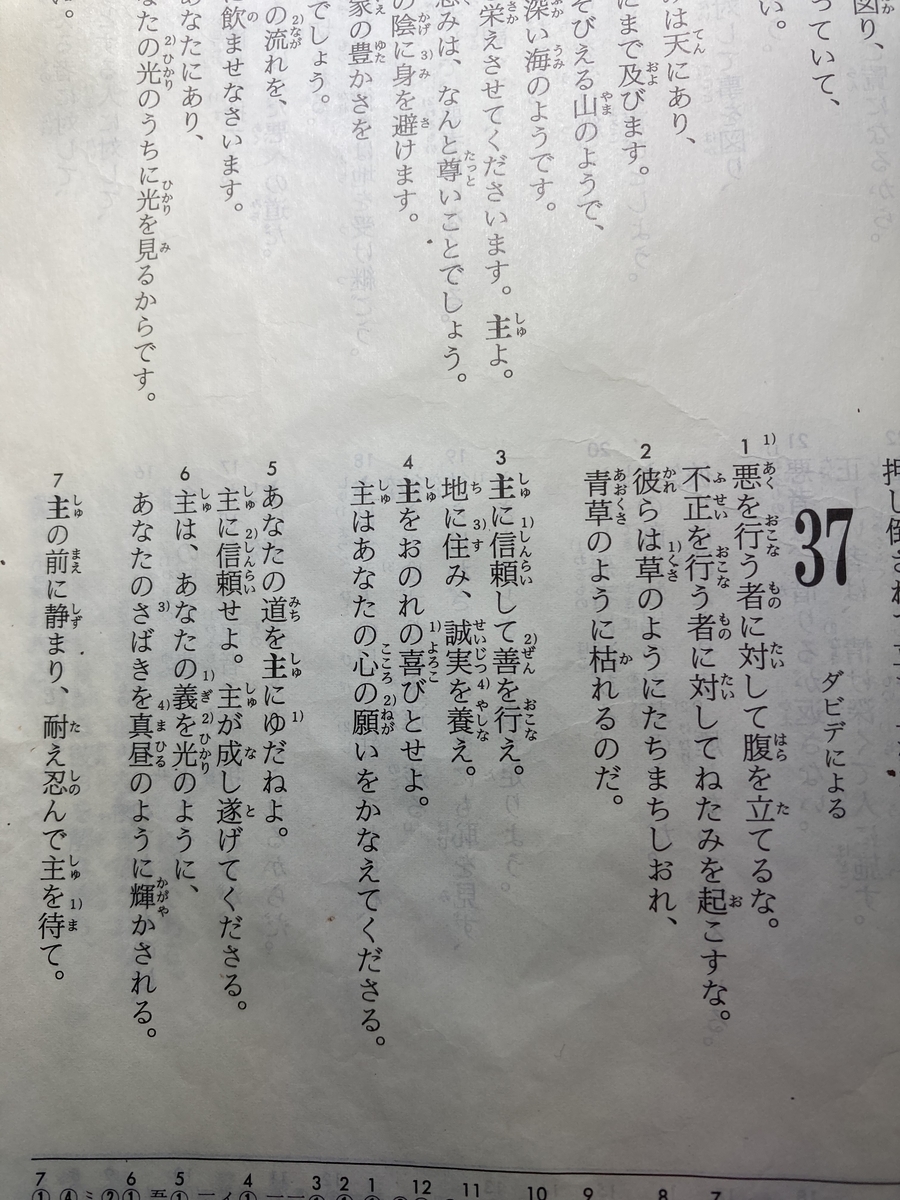 図り、
っていて、
い。
は天にあり、
にまで及びます。
そびえる山のようで、
深い海のようです。
栄えさせてくださいます。主よ。
みは、なんと尊いことでしょう。
の陰に3)身を避けます。
家の豊かさを
でしょう。
の2)流れを、
に飲ませなさいます。
あなたにあり、
なたの2)光のうちに光を見るからです。
い。
押し倒され
37
ダビデによる
1 1)悪を行う者に対して腹を立てるな。
不正を行う者に対してねたみを起こすな。
2 彼らは1)草のようにたちまちしおれ、
青草のように枯れるのだ。
3 主に1)信頼して2)善を行え。
地に3)住み、誠実を4)養え。
4 主をおのれの1)喜びとせよ。
主はあなたの心の2)願いをかなえてくださる。
5 あなたの道を主に1)ゆだねよ。
主に2)信頼せよ。主が成し遂げてくださる。
6 主は、あなたの1)義を2)光のように、
あなたの3)さばきを4)真昼のように輝かされる。
7 主の前に静まり、耐え忍んで主を1)待て。
7
8
9
10
11
12
1
2
3
4
5
6
7